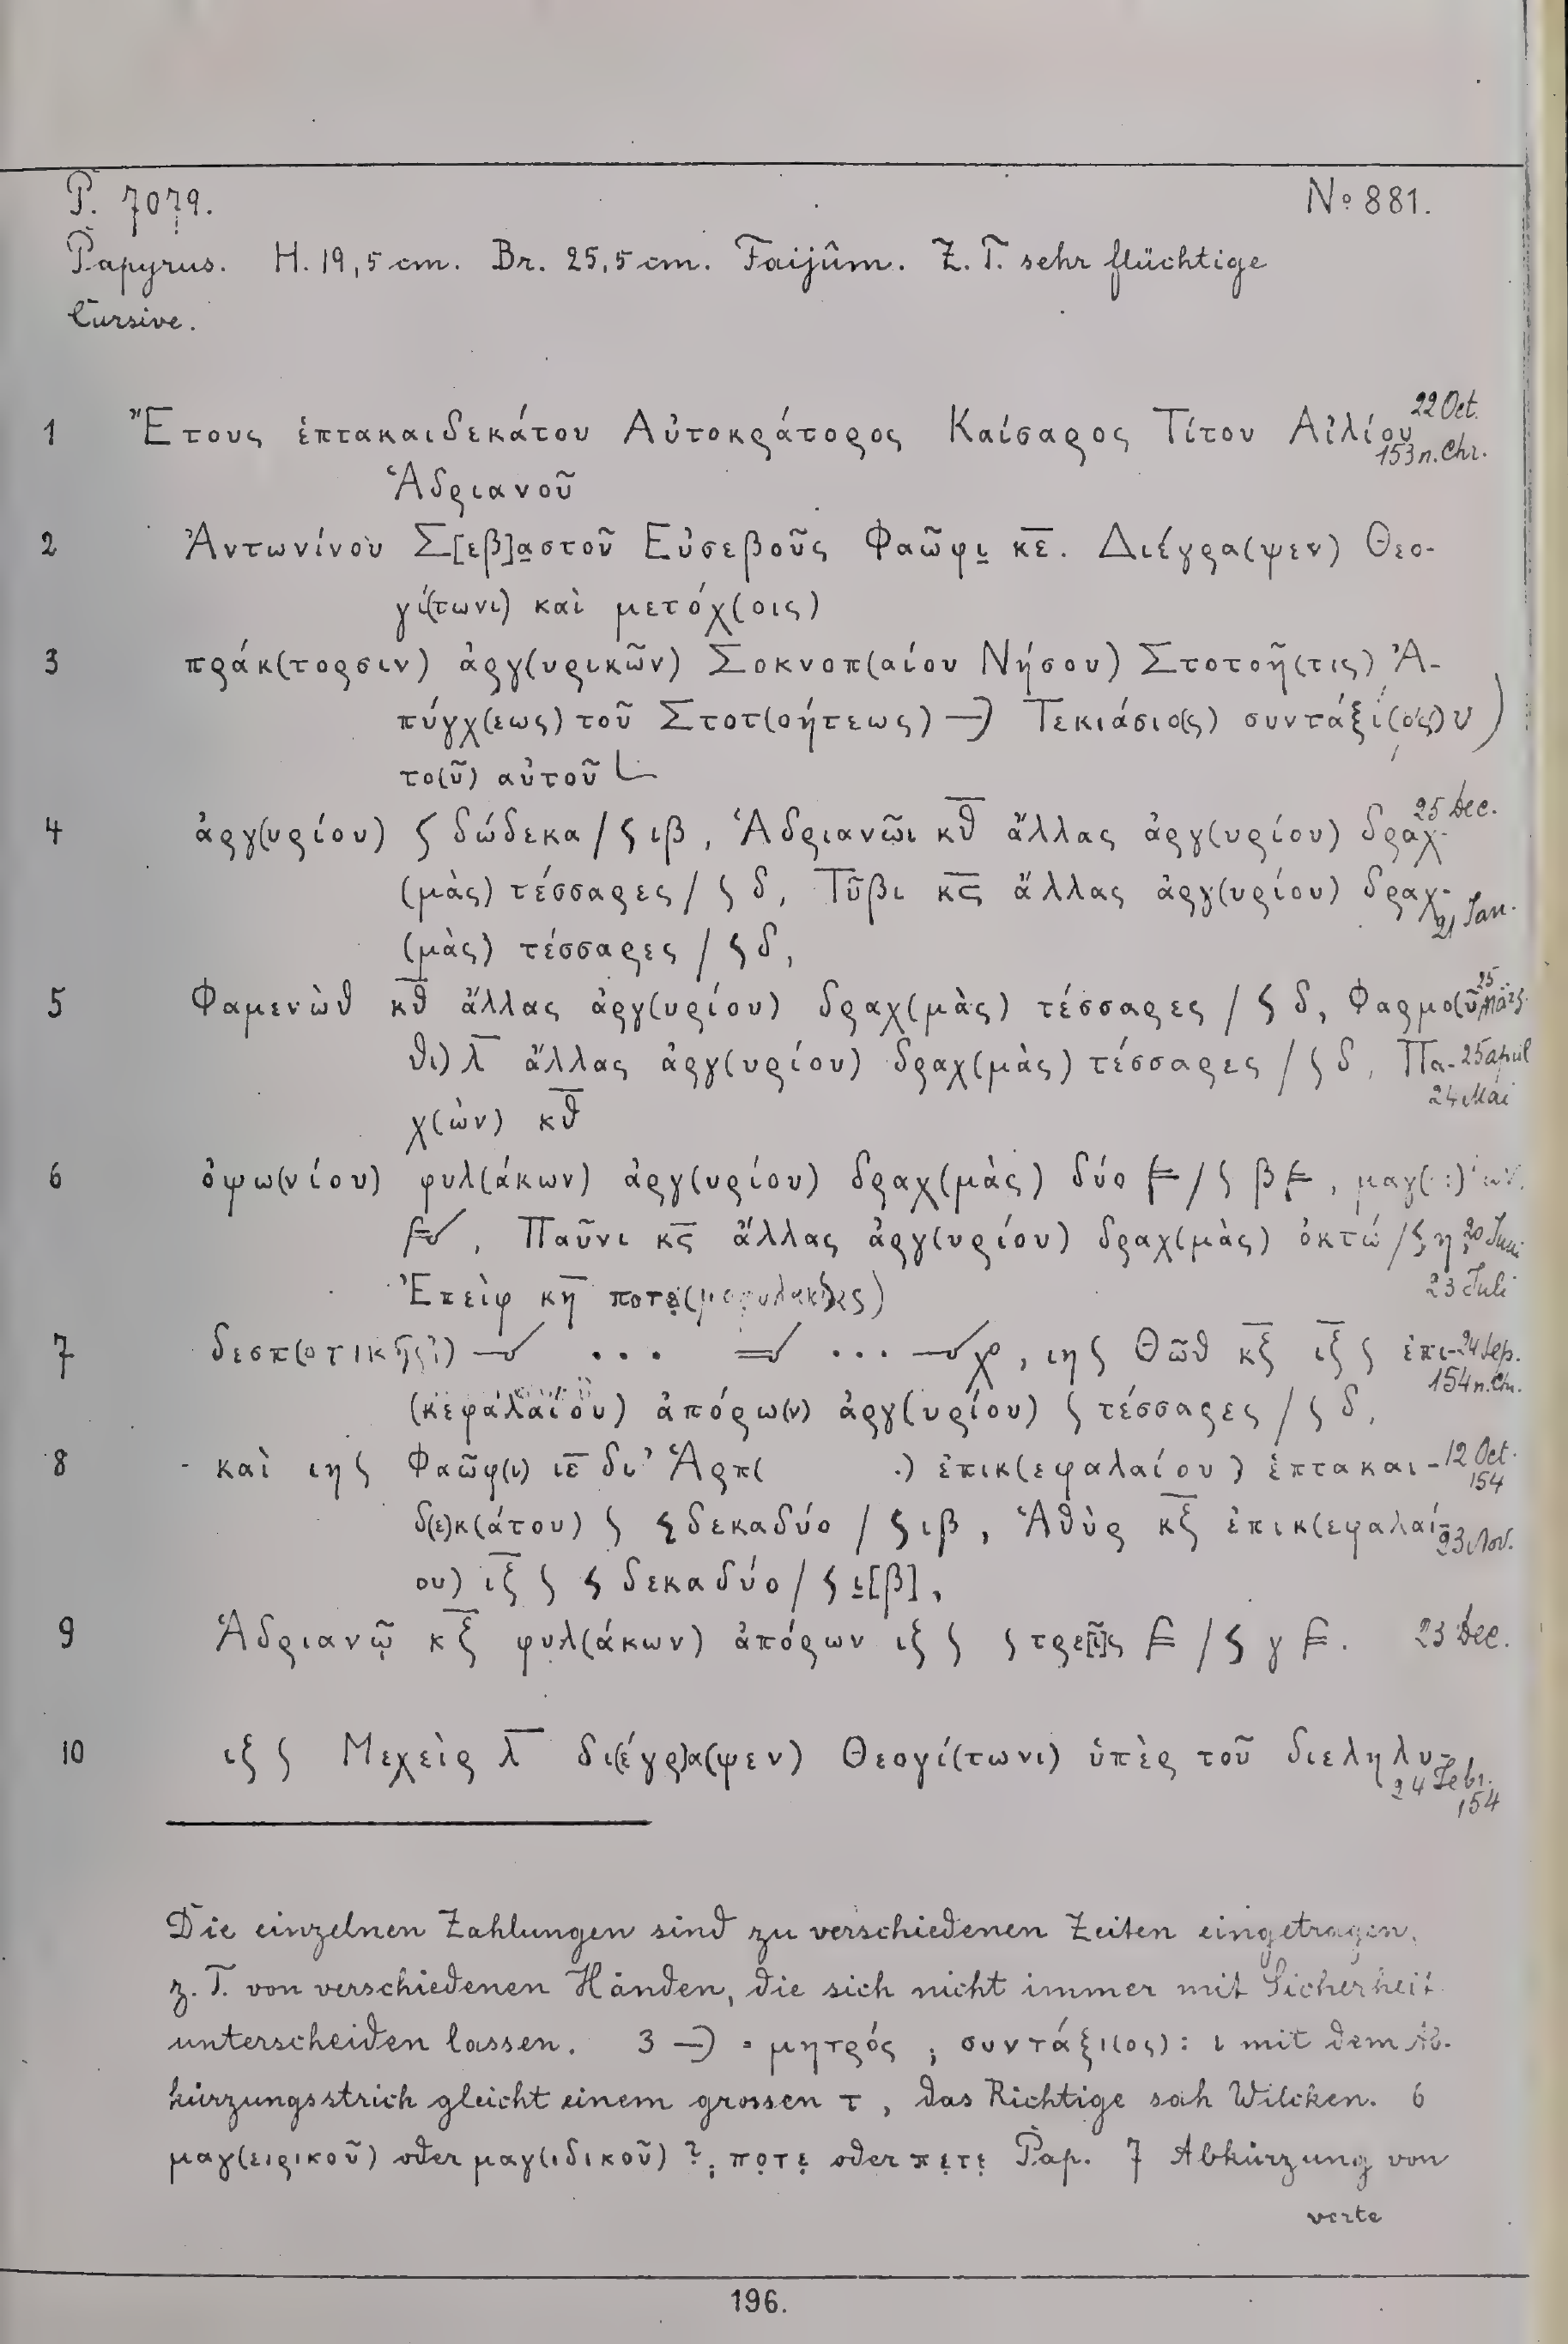 P. 7079.
№ 881.
Papyrus. H. 19,5 cm. Br. 25,5 cm. Faijûm. Z. T. sehr flüchtige
Cursive.
1 Ἔτους ἑπτακαιδεκάτου Αὐτοκράτορος Καίσαρος Τίτου Αἰλίου 22 Oct. 153 n. Chr.
Ἁδριανοῦ
2 Ἀντωνίνου Σ[εβ]α̣στοῦ Εὐσεβοῦς Φαῶφι̣ κ̅ε̅. Διέγρα(ψεν) Θεο-
γί(τωνι) καὶ μετόχ(οις)
3 πράκ(τορσιν) ἀργ(υρικῶν) Σοκνοπ(αίου Νήσου) Στοτοῆ(τις) Ἀ-
πύγχ(εως) τοῦ Στοτ(οήτεως) —) Τεκιάσιο(ς) συντάξι(ος)
το(ῦ) αὐτοῦ
4 ἀργ(υρίου) ʃ δώδεκα / ʃ ιβ, Ἁδριανῶι κ̅θ̅ ἄλλας ἀργ(υρίου) δραχ- 25 Dec.
(μὰς) τέσσαρες / ʃ δ, Τῦβι κ̅ϛ̅ ἄλλας ἀργ(υρίου) δραχ- 21 Jan.
(μὰς) τέσσαρες / ʃ δ,
5 Φαμενὼθ κ̅θ̅ ἄλλας ἀργ(υρίου) δραχ(μὰς) τέσσαρες / ʃ δ, Φαρμο(ῦ- 25 März
θι) λ̅ ἄλλας ἀργ(υρίου) δραχ(μὰς) τέσσαρες / ʃ δ, Πα- 25 April
χ(ὼν) κ̅θ̅ 24 Mai
6 ὀψω(νίου) φυλ(άκων) ἀργ(υρίου) δραχ(μὰς) δύο / ʃ β , μαγ( )
, Παῦνι κ̅ϛ̅ ἄλλας ἀργ(υρίου) δραχ(μὰς) ὀκτώ / ʃ η, 20 Juni
Ἐπεὶφ κ̅η̅ ποτε̣( 23 Juli
7 δεσπ(οτικῆς?) ... = ... — χ, ιηʃ Θῶθ κ̅ξ̅ ι̅ξ̅ ʃ ἐπι- 24 Sep. 154 n. Chr.
(κεφαλαίου) ἀπόρω(ν) ἀργ(υρίου) ʃ τέσσαρες / ʃ δ,
8 καὶ ιηʃ Φαῶφ(ι) ι̅ε̅ δι’ Ἁρπ( .) ἐπικ(εφαλαίου) ἑπτακαι- 12 Oct. 154
δ(ε)κ(άτου) ʃ ʃ δεκαδύο / ʃ ιβ, Ἁθὺρ κ̅ξ̅ ἐπικ(εφαλαί- 23 Nov.
ου) ι̅ξ̅ ʃ ʃ δεκαδύο / ʃ ι̣[β],
9 Ἁδριανῷ κ̅ξ̅ φυλ(άκων) ἀπόρων ιξ ʃ ʃ τρε[ῖ]ς / ʃ γ . 23 Dec.
10 ιξ ʃ Μεχεὶρ λ̅ δι(έγρ)α(ψεν) Θεογί(τωνι) ὑπὲρ τοῦ διεληλυ- 24 Febr. 154
Die einzelnen Zahlungen sind zu verschiedenen Zeiten eingetragen,
z. T. von verschiedenen Händen, die sich nicht immer mit Sicherheit
unterscheiden lassen. 3 —) = μητρός ; συντάξι(ος): ι mit dem Ab-
kürzungsstrich gleicht einem grossen τ, das Richtige sah Wilcken. 6
μαγ(ειρικοῦ) oder μαγ(ιδικοῦ) ?; πο̣τε̣ oder πε̣τε̣ Pap. 7 Abkürzung von
verte
196.